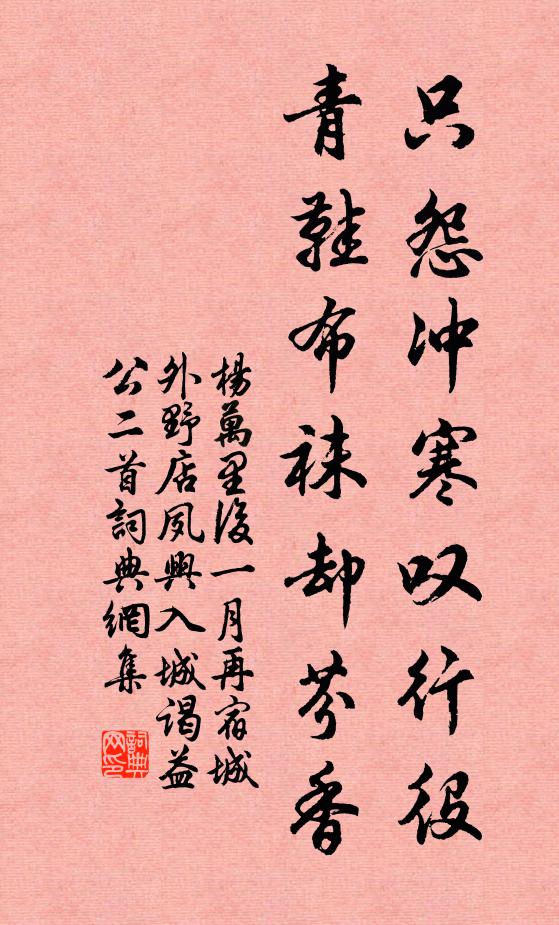 只怨冲寒叹行役
青鞋布袜却芬香
楊萬里後一月再宿城
外野店夙興入城谒益
公二首詞典網集
詞典网印